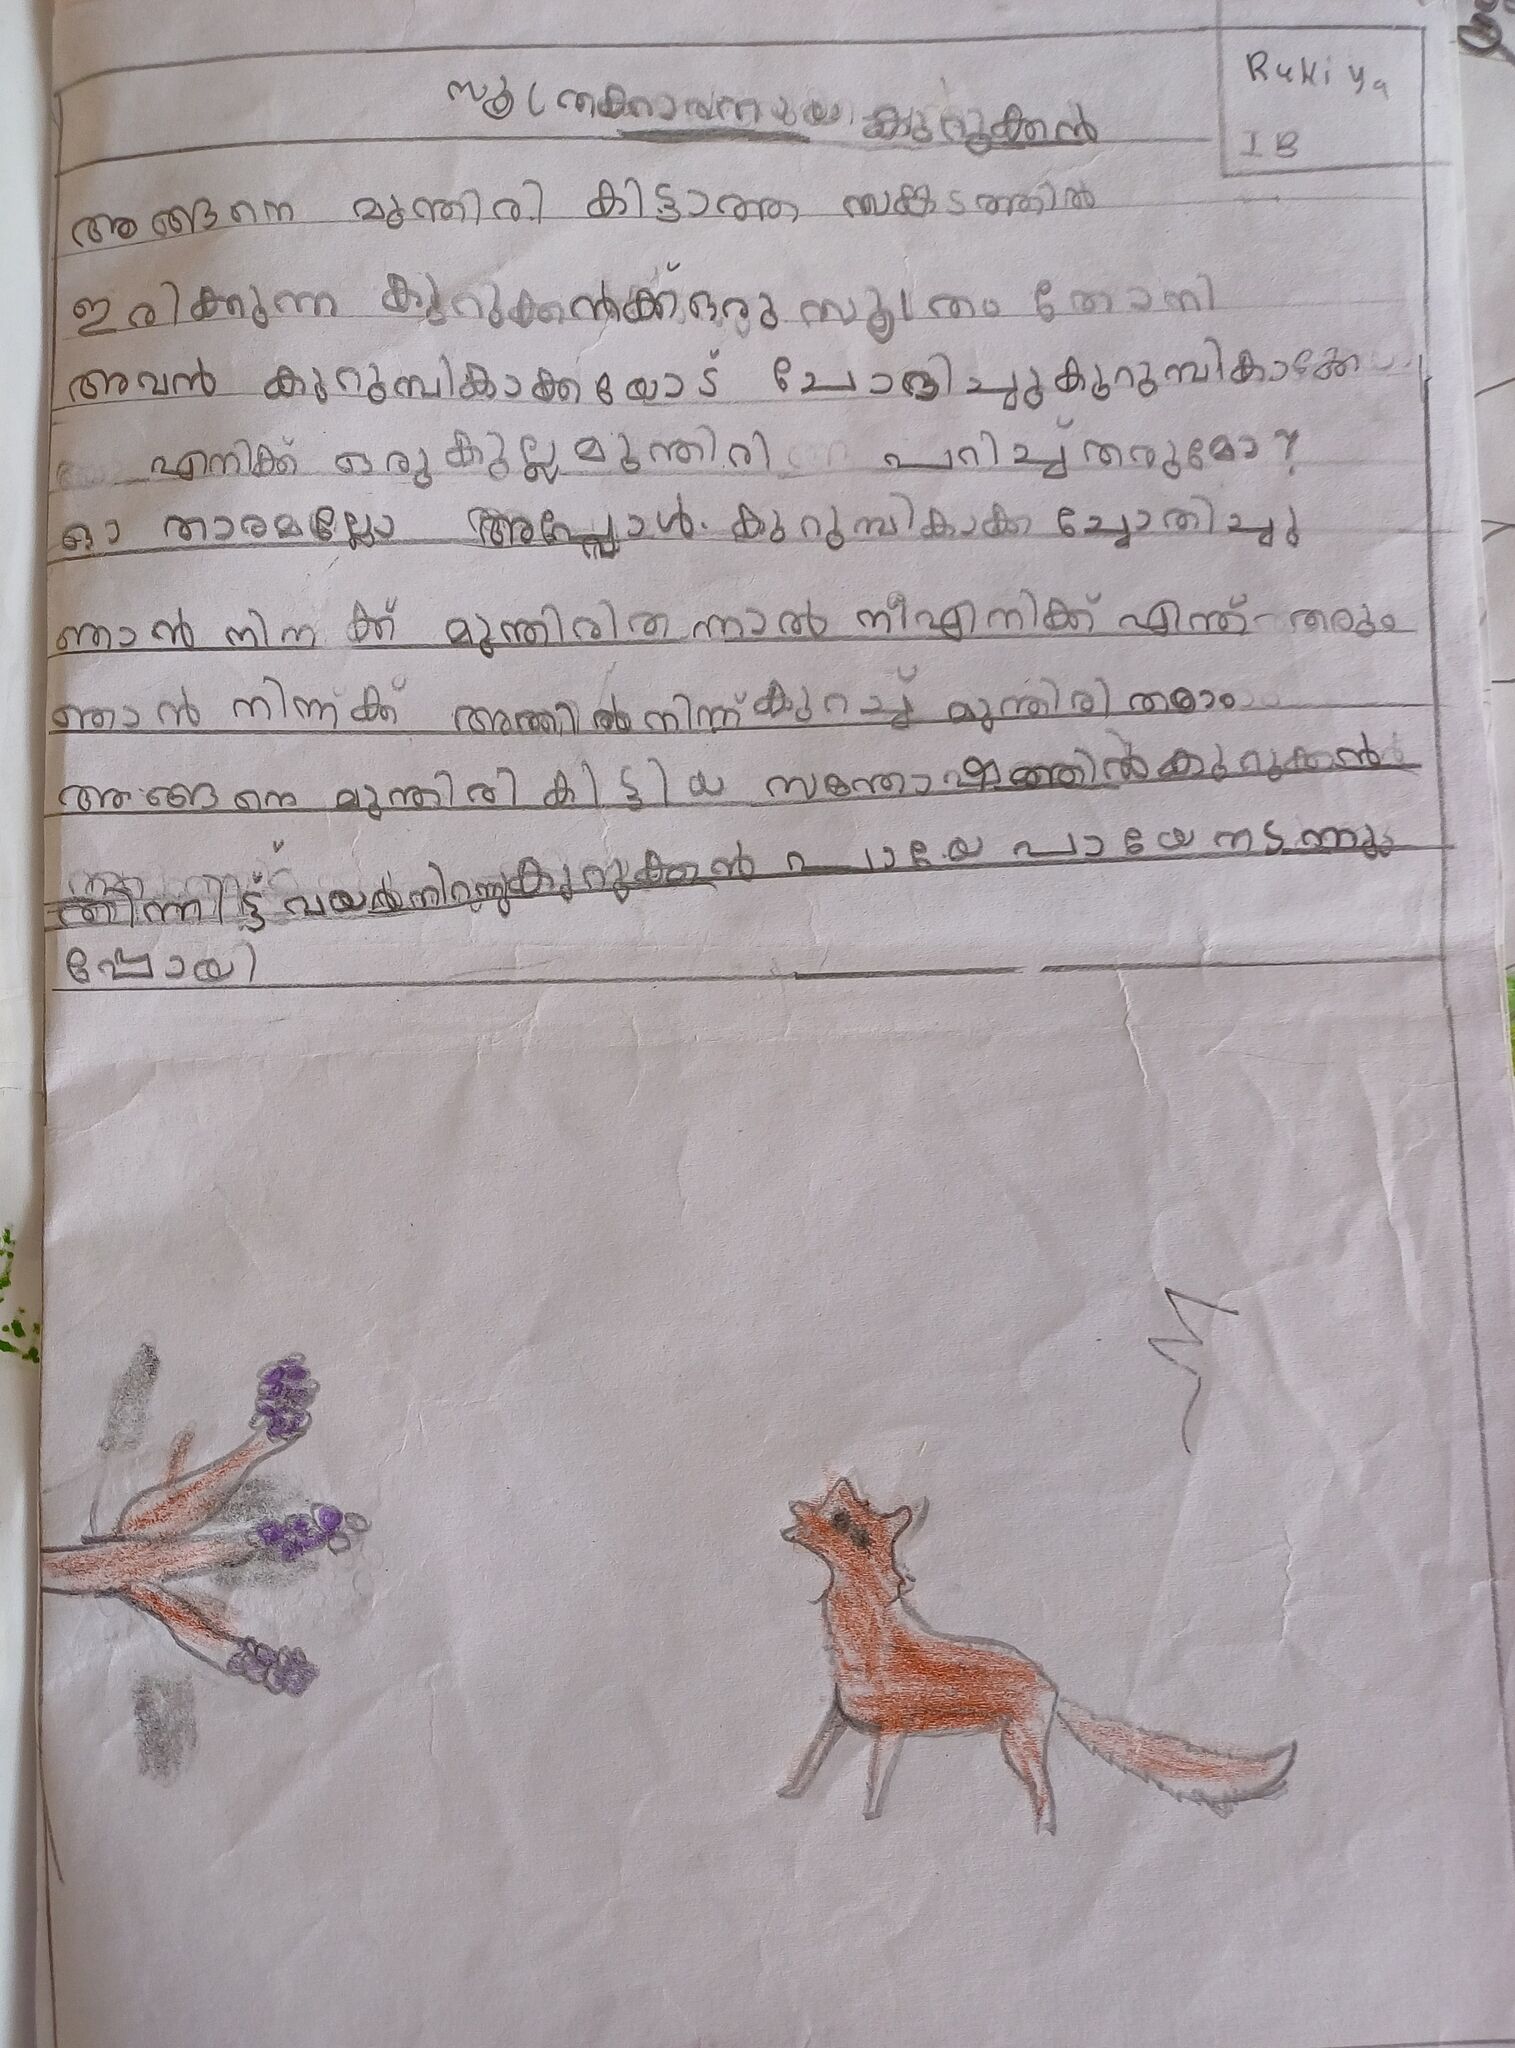 സൂത്രക്കാരനായ കുറുക്കൻ
Rukiya
I B
അങ്ങനെ മുന്തിരി കിട്ടാത്ത സങ്കടത്തിൽ
ഇരിക്കുന്ന കുറുക്കൻക്ക് ഒരു സൂത്രം തോനി
അവൻ കുറുമ്പികാക്കയോട് ചോദിച്ചു കുറുമ്പികാക്കേ
എനിക്ക് ഒരു കുല്ല മുന്തിരി പറിച്ച് തരുമോ?
ഓ താരമല്ലോ അപ്പോൾ. കുറുമ്പികാക്ക ചോതിച്ചു
ഞാൻ നിനക്ക് മുന്തിരി തന്നാൽ നീ എനിക്ക് എന്ത് തരും
ഞാൻ നിന്ന്ക്ക് അതിൽ നിന്ന് കുറച്ച് മുന്തിരി തരാം
അങ്ങനെ മുന്തിരി കിട്ടിയ സന്തോഷത്തിൽ കുറുക്കൻ
തിന്നിട്ട് വയർ നിറഞ്ഞു കുറുക്കൻ പായേ പായേ നടന്നു
പോയി